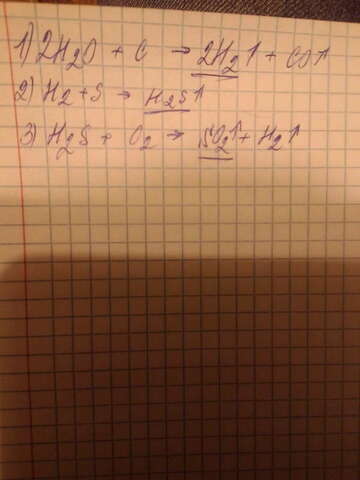 1) 2H₂O + C → 2H₂↑ + CO↑
2) H₂ + S → H₂S↑
3) H₂S + O₂ → SO₂↑ + H₂↑